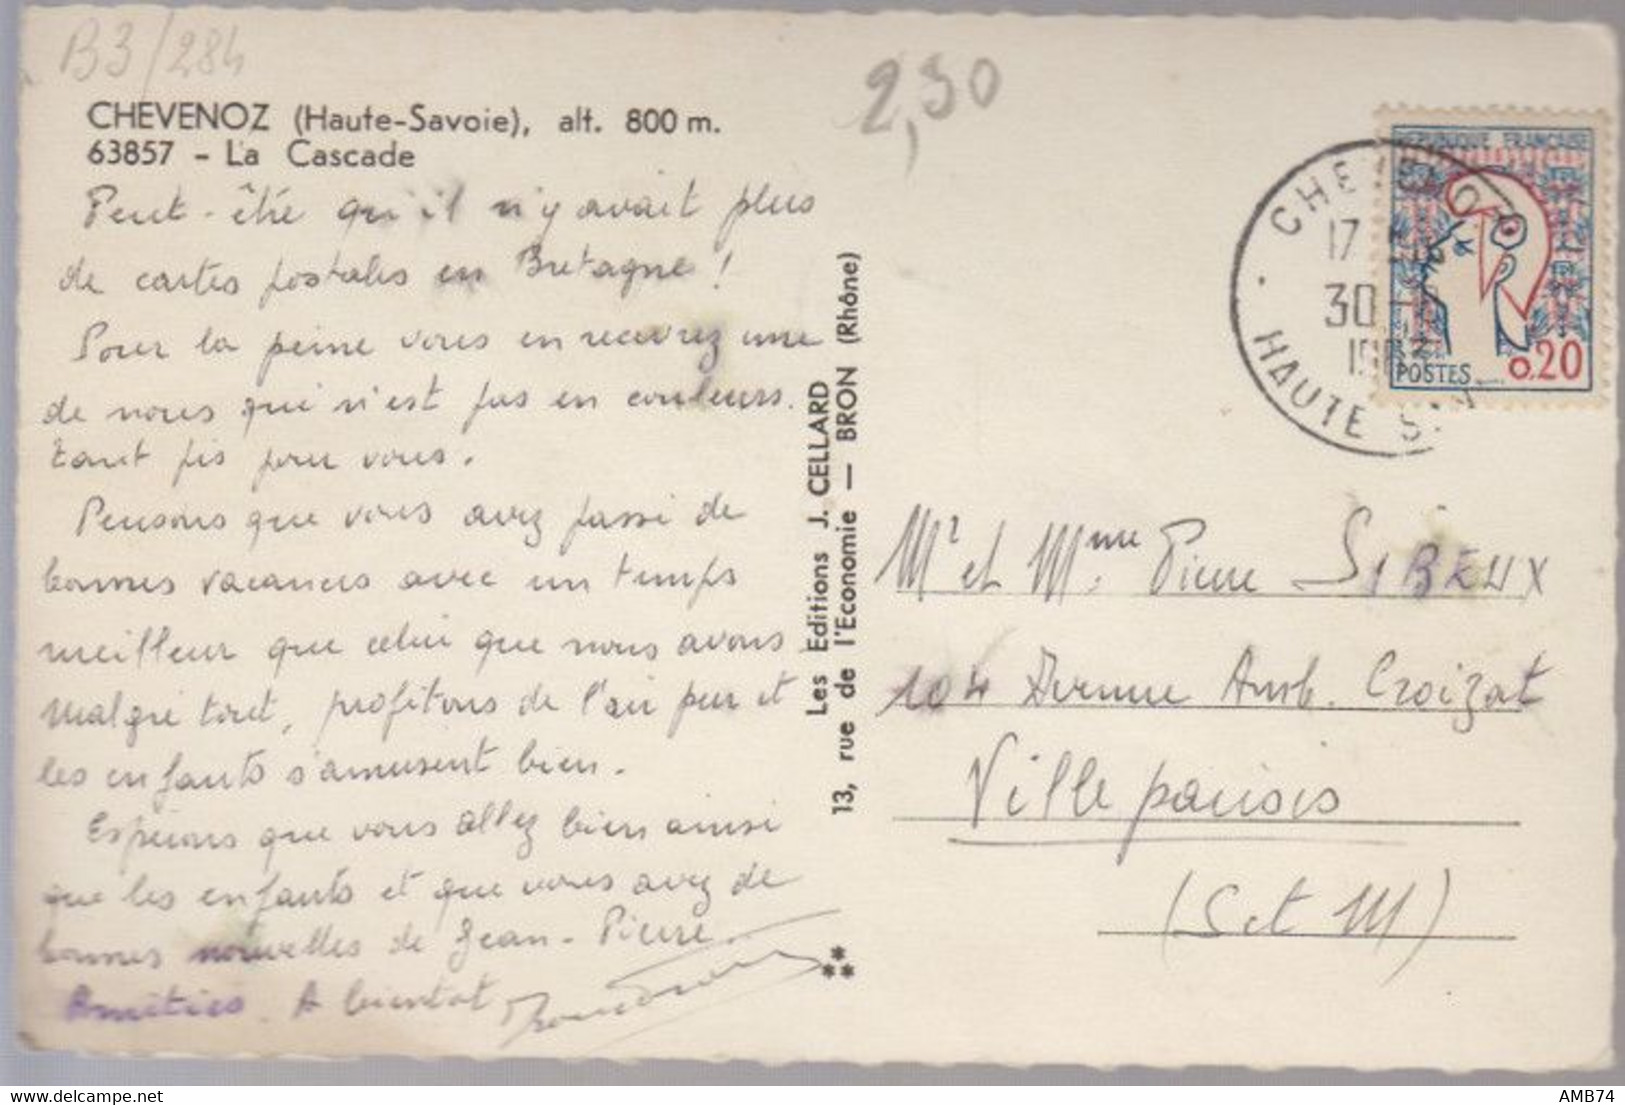 B3/284
2,50
CHEVENOZ (Haute-Savoie), alt. 800 m.
63857 - La Cascade
Peut-être qu'il n'y avait plus
de cartes postales en Bretagne !
Pour la peine vous en recevrez une
de nous qui n'est pas en couleurs.
tant pis pour vous.
Pensons que vous avez passé de
bonnes vacances avec un temps
meilleur que celui que nous avons
Malgré tout, profitons de l'air pur et
les enfants s'amusent bien.
Espérons que vous allez bien ainsi
que les enfants et que vous avez de
bonnes nouvelles de Jean-Pierre.
Amitiés. A bientot
Les Editions J. CELLARD
13, rue de l'Economie — BRON (Rhône)
REPUBLIQUE FRANÇAISE
POSTES
0.20
CHEVENOZ
17
30
HAUTE SAV
Mr et Mme Pierre SIBEUX
104 Avenue Amb. Croizat
Villeparisis
(S et M)
AMB74